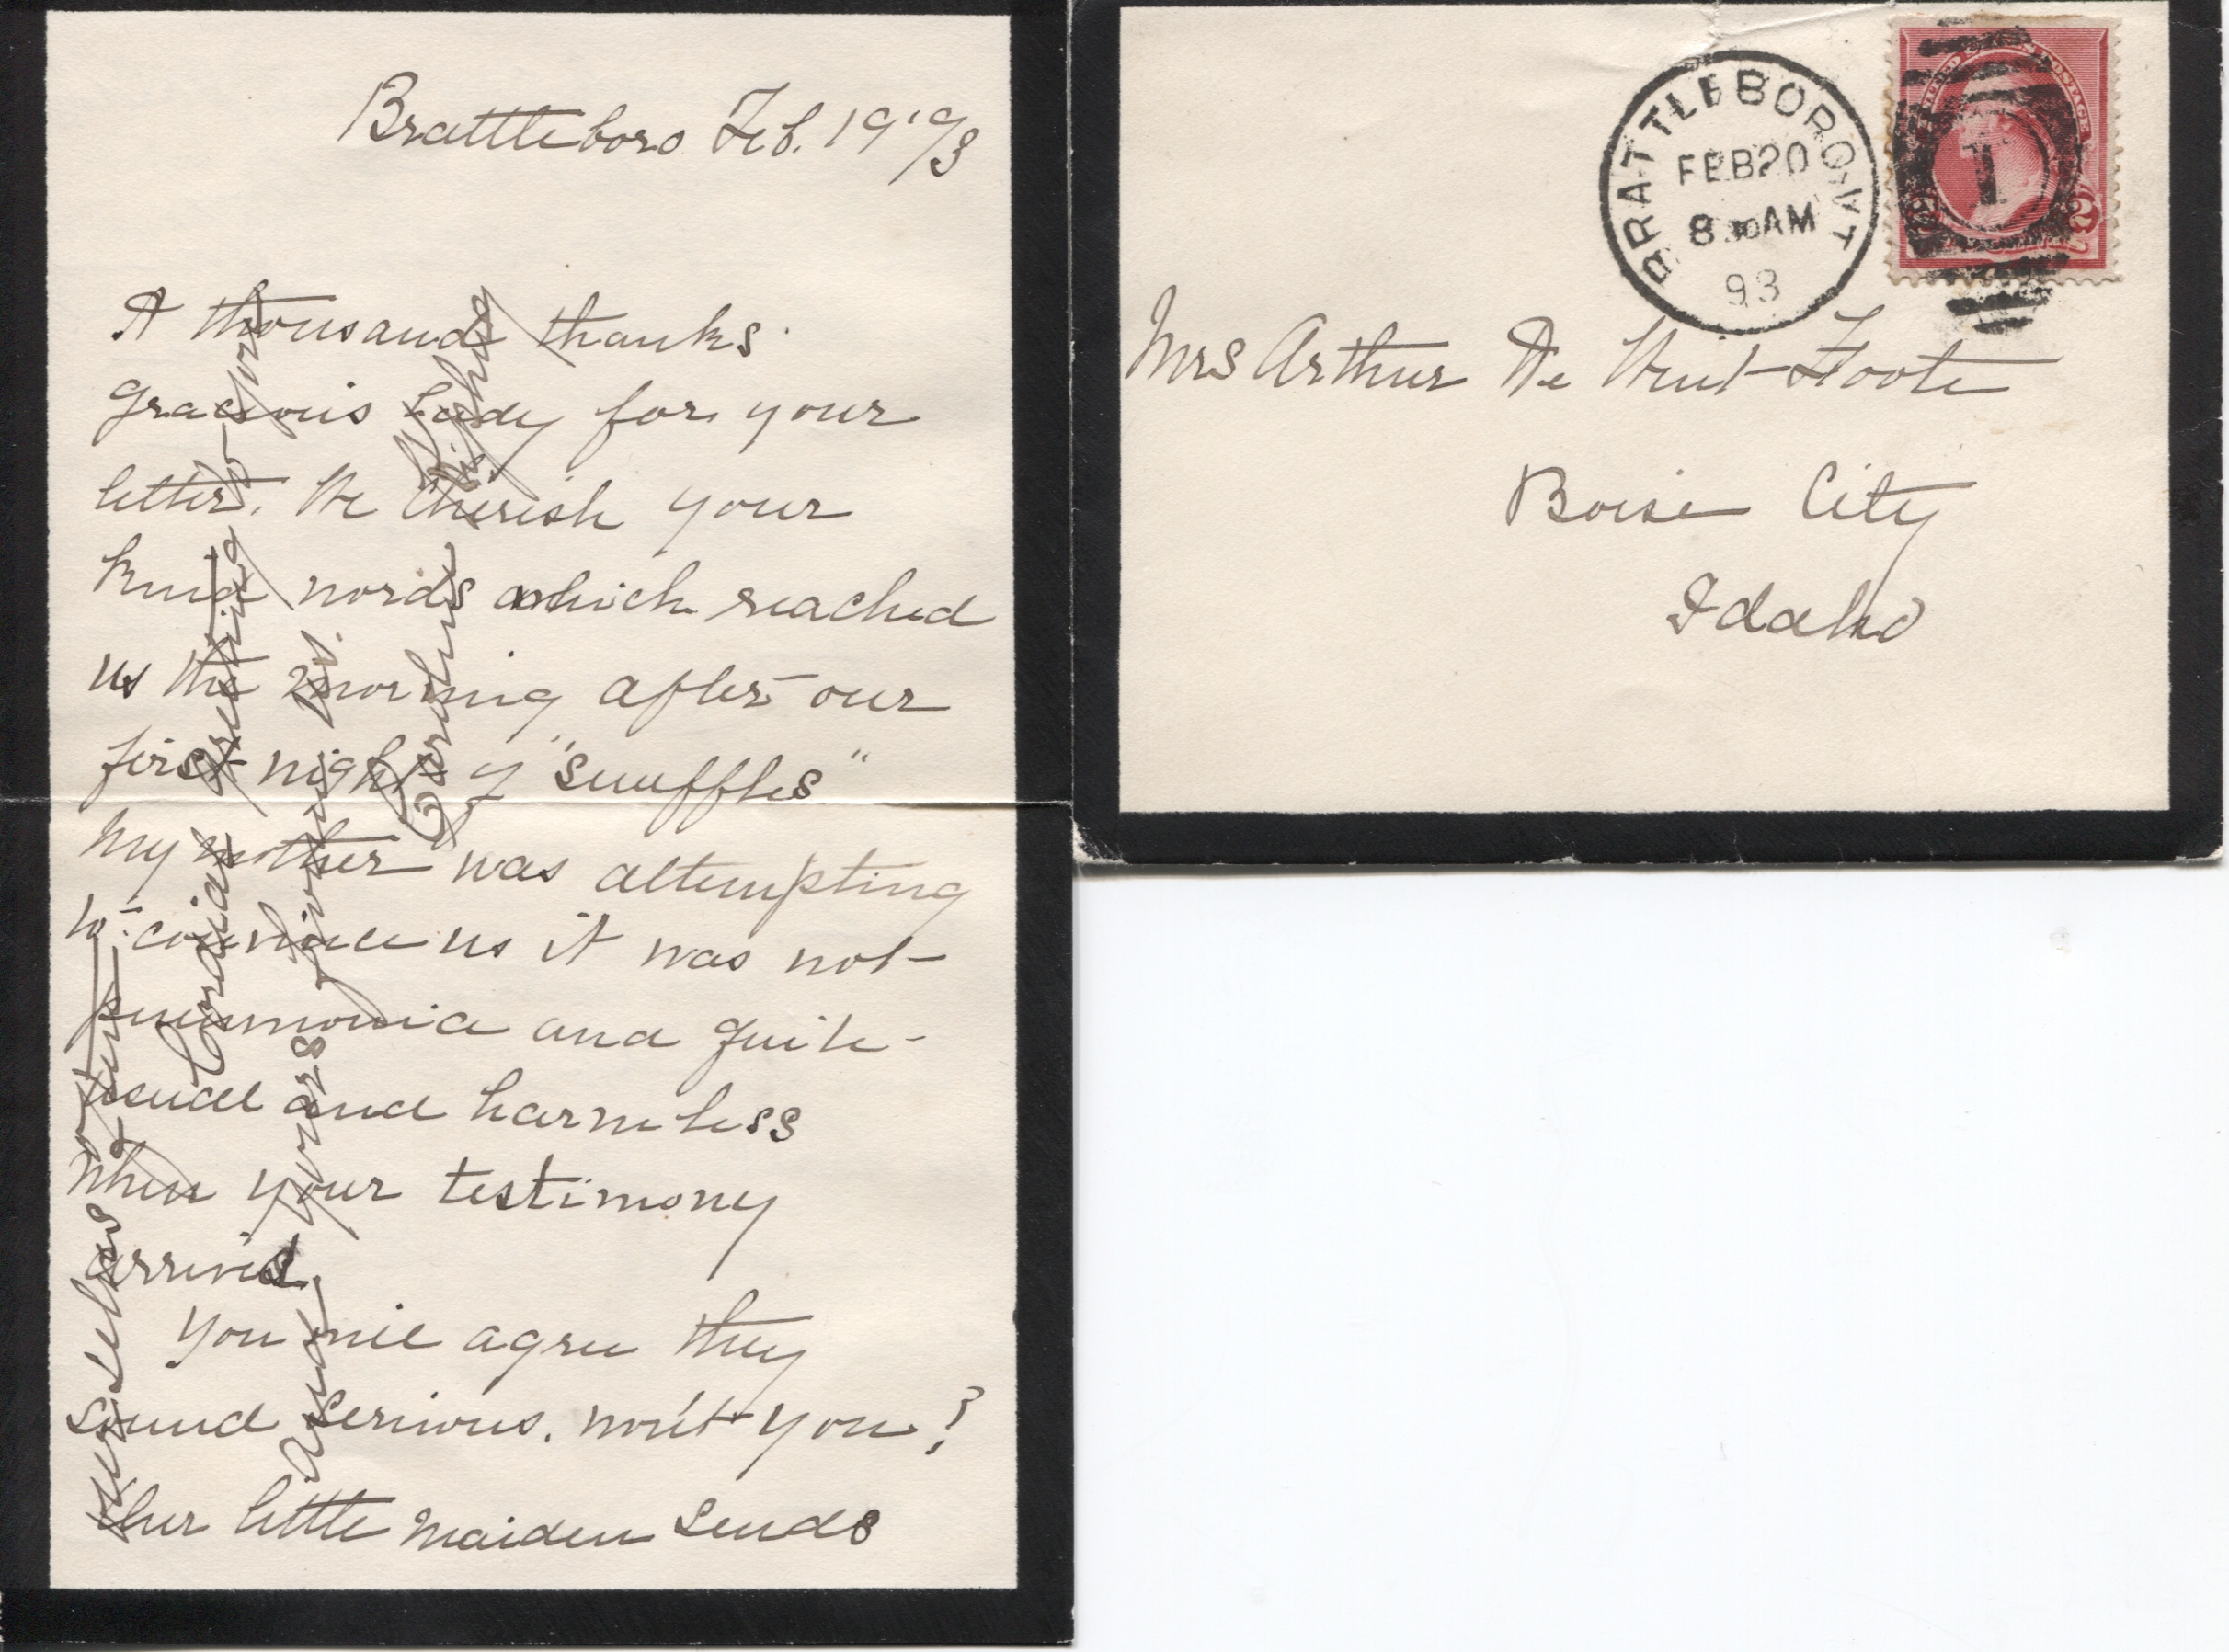 Brattleboro Feb. 19 '93
A thousand thanks
Gracious Lady for your
letter. We cherish your
kind words which reached
us the morning after our
first night of "snuffles"
My mother was attempting
to convince us it was not
pneumonia and quite
usual and harmless
when your testimony
arrived.
You will agree they
sound serious. won't you?
Our little maiden sends
cordial greeting to yours
and yours joins us.
Caroline Kipling
BRATTLEBORO, VT
FEB 20
8 30 AM
93
UNITED STATES POSTAGE
2 2
1
Mrs Arthur De Wint Foote
Boise City
Idaho